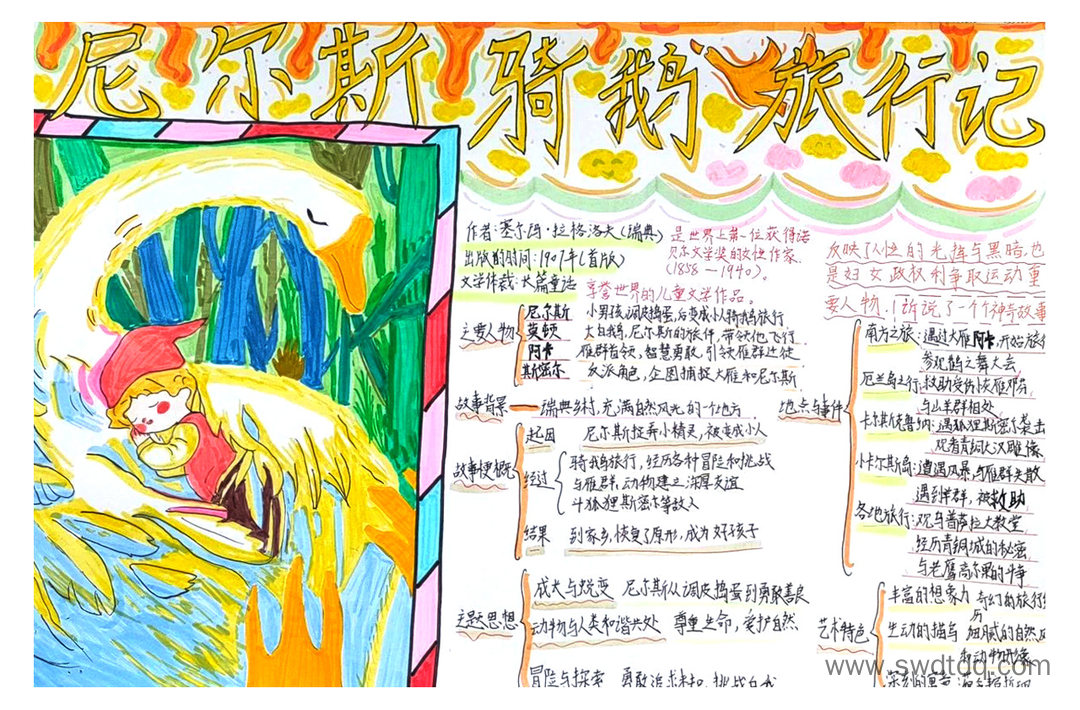 尼尔斯骑鹅旅行记
作者:塞尔玛·拉格洛夫(瑞典)
出版的时间:1907年(首版)
文学体裁:长篇童话
是世界上第一位获得诺
贝尔文学奖的女性作家
(1858—1940)。
享誉世界的儿童文学作品。
反映了人性的光辉与黑暗,也
是妇女政权利争取运动重
要人物!诉说了一个神奇故事
主要人物
尼尔斯 小男孩,调皮捣蛋,后变成小人骑鹅旅行
莫顿 大白鹅,尼尔斯的旅伴,带领他飞行
阿卡 雁群首领,智慧勇敢,引领雁群迁徙
斯密尔 反派角色,企图捕捉大雁和尼尔斯
故事背景 瑞典乡村,充满自然风光的一个地方
故事梗概
起因 尼尔斯捉弄小精灵,被变成小人
经过
骑鹅旅行,经历各种冒险和挑战
与雁群,动物建立深厚友谊
斗狐狸斯密尔等敌人
结果 到家乡,恢复了原形,成为好孩子
主题思想
成长与蜕变 尼尔斯从调皮捣蛋到勇敢善良
动物与人类和谐共处 尊重生命,爱护自然
冒险与探索 勇敢追求未知,挑战自我
地点与事件
南方之旅:遇过大雁阿卡,开始旅
参观鹤之舞大会
厄兰岛之行:救助受伤灰雁邓芬
与山羊群相处
卡尔斯克鲁纳:遇狐狸斯密尔袭击
观看青铜大汉雕像
小卡尔斯岛:遭遇风暴与雁群失散
遇到羊群,被救助
各地旅行:观乌普萨拉大教堂
经历青铜城的秘密
与老鹰高尔果的斗争
艺术特色
丰富的想象力 奇幻的旅行经
历
生动的描写 细腻的自然风
和动物形象
www.swdtdq.com